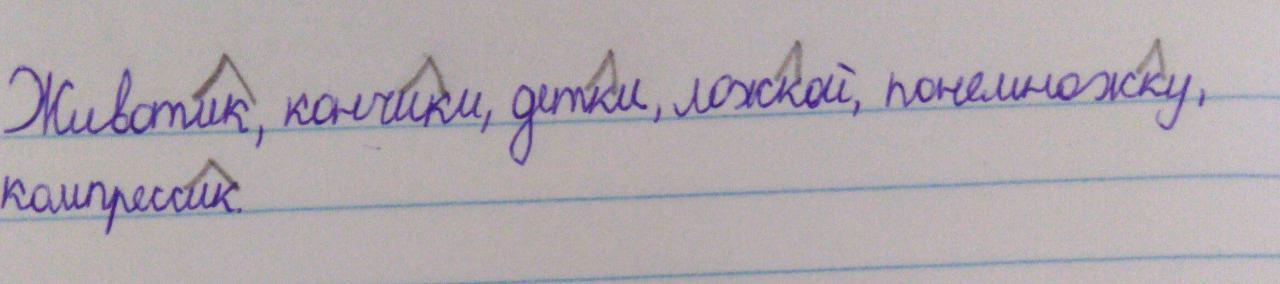 Животик, кончики, детки, ложкой, понемножку,
компрессик.